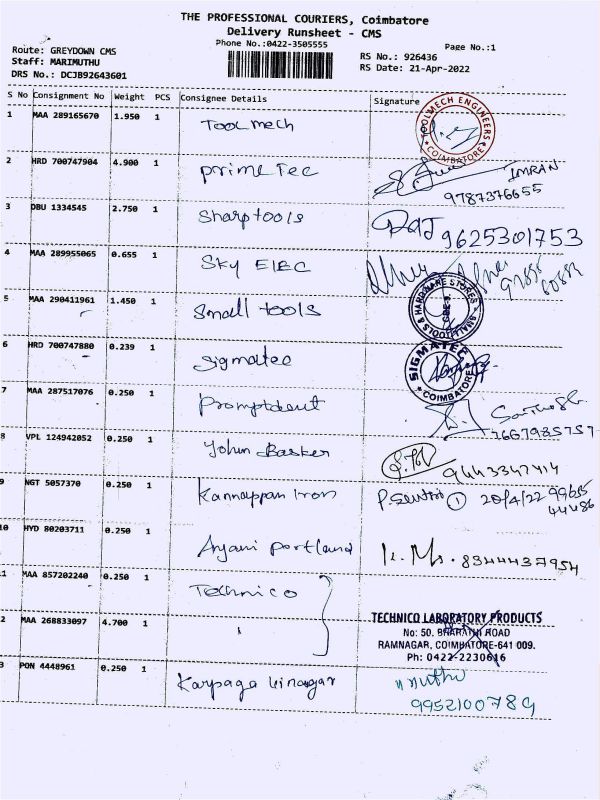 THE PROFESSIONAL COURIERS, Coimbatore
Delivery Runsheet - CMS
Phone No.:0422-3505555
Page No.:1
Route: GREYDOWN CMS
Staff: MARIMUTHU
DRS No.: DCJB92643601
RS No.: 926436
RS Date: 21-Apr-2022
S No Consignment No Weight PCS Consignee Details Signature
1 MAA 289165670 1.950 1 Toolmech
TOOLMECH ENGINEERS COIMBATORE
2 HRD 700747904 4.900 1 prime Tec IMRAN
9787376655
3 DBU 1334545 2.750 1 Sharp tools Raj 9625301753
4 MAA 289955065 0.655 1 Sky ELEC
5 MAA 290411961 1.450 1 Small tools
& HARDWARE STORES
6 HRD 700747880 0.239 1 Sigmatec
SIGMATEC COIMBATORE
7 MAA 287517076 0.250 1 Promptdent
7667985757
8 VPL 124942052 0.250 1 John Basker 9443347414
9 NGT 5057370 0.250 1 Kannappan Iron 1 20/4/22 99655
44486
10 HYD 80203711 0.250 1 Anjani portland 8344437954
1 MAA 857202240 0.250 1 Technico
2 MAA 268833097 4.700 1
TECHNICO LABORATORY PRODUCTS
No: 50. BHARATHI ROAD
RAMNAGAR, COIMBATORE-641 009.
Ph: 0422-2230616
3 PON 4448961 0.250 1 Karpaga Vinagar Muthu
9952100789